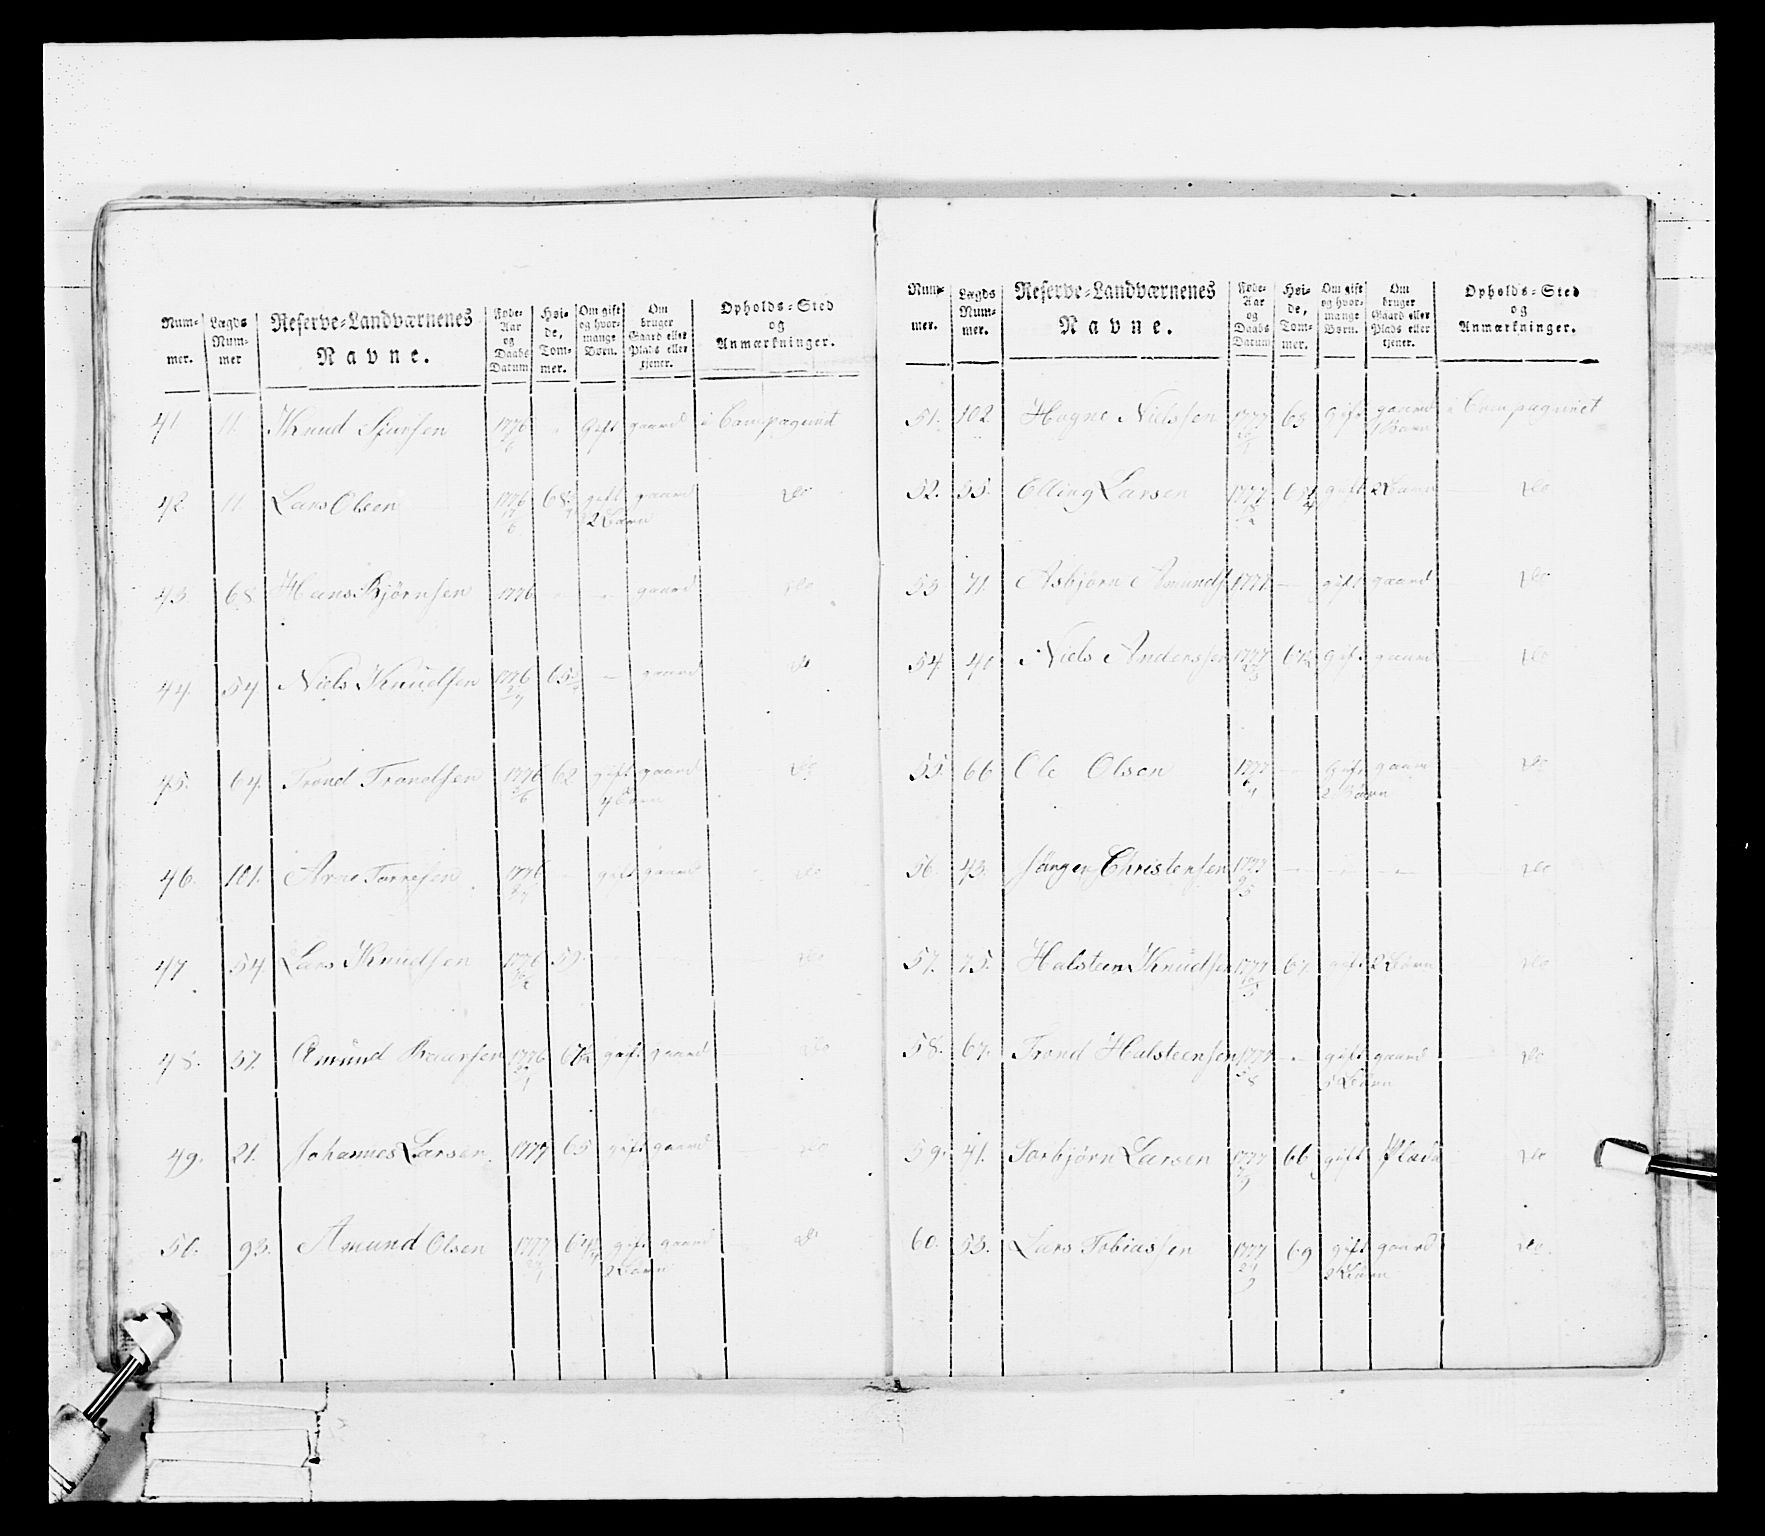 Num-
mer.
Lægds
Num-
mer
Reserve-Landværnenes
Navne.
Føde-
Aar
og
Daabs
Datum
Høi-
de,
Tom-
mer.
Om gift
og hvor-
mange
Børn.
Om
bruger
Gaard eller
Plads eller
tjener.
Opholds-Sted
og
Anmærkninger.
41. 11. Knud Sjursen 1776 Gift gaard i Compagniet
42 11 Lars Olsen 1776 68 gift gaard do
2 Børn
43. 68 Hans Bjørnsen 1776 - - gaard do
44. 54. Niels Knudsen 1776 65 - gaard do
45. 64. Trond Trondsen 1776 62 gift gaard do
4 Børn
46. 101. Arne Torresen 1776 - gift gaard do
47 54 Lars Knudsen 1776 59. do
48. 57. Amund 1776 gift gaard do
49. 21. Johannes Larsen 1777 65 gift gaard do
50. 93. Amund Olsen 1777 gift gaard do
2 Børn
Num-
mer.
Lægds
Num-
mer.
Reserve-Landværnenes
Navne.
Føde-
Aar
og
Daabs
Datum
Høi-
de,
Tom-
mer.
Om gift
og hvor-
mange
Børn.
Om
bruger
Gaard eller
Plads eller
tjener.
Opholds-Sted
og
Anmærkninger.
51. 102 Hagne Nielssen 1777 Gift gaard i Compagniet
1 Barn
52. 55. Elling Larsen 1777 gift 2 Børn do
53 71. Asbjørn Amunds 1777 - gift gaard do
54 40 Niels Anderssen 1777 Gift gaard do
55. 66 Ole Olsen 1777 - Gift gaard do
2 Børn
56. 43. Jörgen Christensen 1777 - - - do
57. 75. Halsteen Knudsen 1777 67. gift 2 Børn do
58. 67. Trond Halsteensen 1777 - gift gaard do
Børn
59. 41. Torbjørn Larsen 1777 66 gift Plads do
60. 53. Lars Tobiassen 1777 69 gift gaard do
Børn